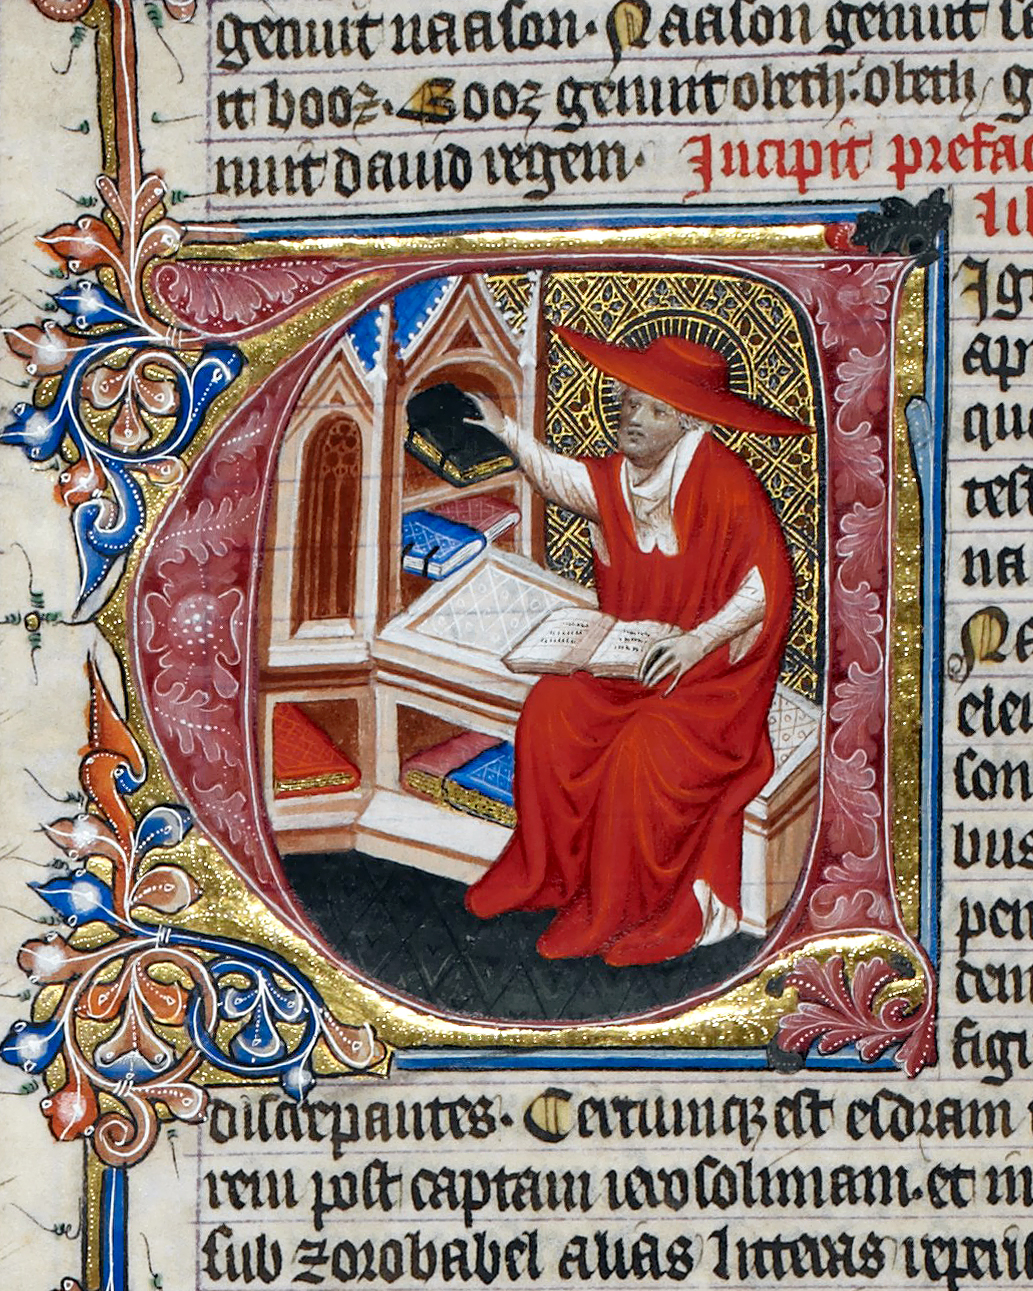 genuit naason. Naason genuit
it booz. Booz genuit obeth. obeth g
nuit dauid regem. Incipit prefac
li
Igi
ap
qu
test
na
Ne
elem
son
bus
per
dem
figu
discrepantes. Certumq; est esdram
rem post captam ierosolimam. et in
sub zorobabel alias litteras reperi